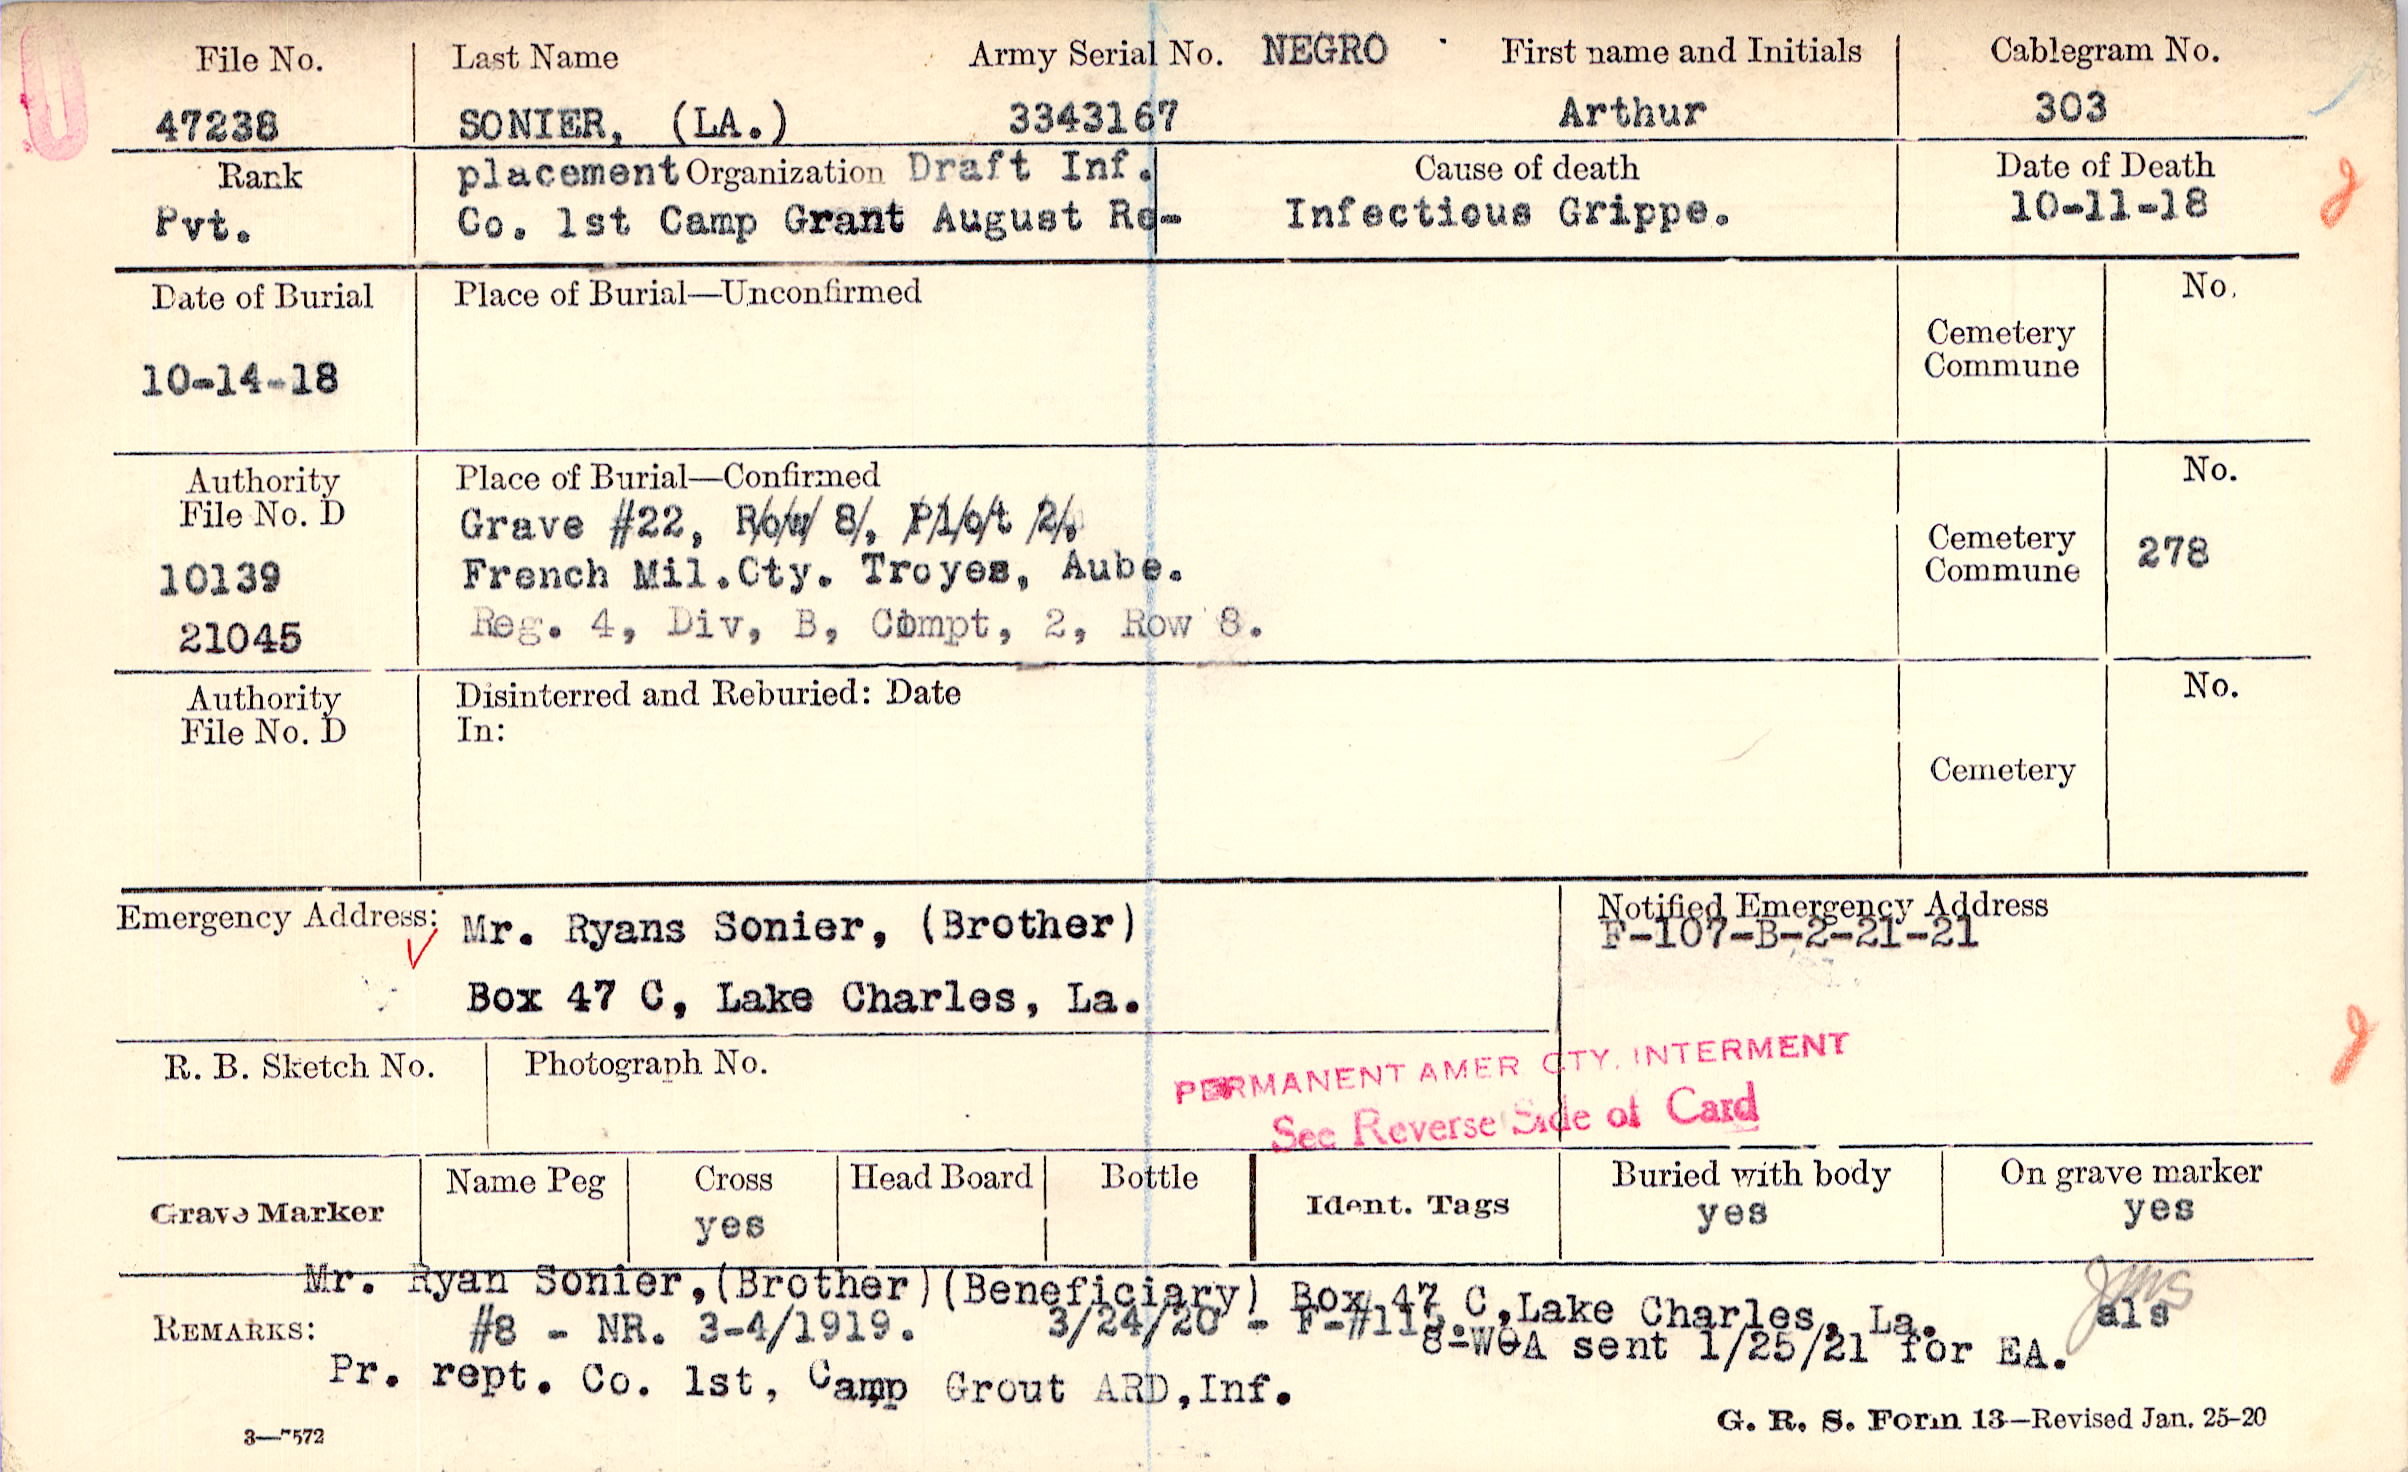 File No.
Last Name
Army Serial No. NEGRO
First name and Initials
Cablegram No.
47238
SONIER, (LA.)
3343167
Arthur
303
Rank
placement Organization Draft Inf.
Cause of death
Date of Death
Pvt.
Co. 1st Camp Grant August Re-
Infectious Grippe.
10-11-18
Date of Burial
Place of Burial—Unconfirmed
No.
Cemetery
Commune
10-14-18
Authority
File No. D
Place of Burial—Confirmed
No.
Grave #22, Row 8, Plot 2.
Cemetery
Commune
278
10139
French Mil.Cty. Troyes, Aube.
21045
Reg. 4, Div, B, Compt, 2, Row 8.
Authority
File No. D
Disinterred and Reburied: Date
In:
No.
Cemetery
Emergency Address:
Mr. Ryans Sonier, (Brother)
Box 47 C, Lake Charles, La.
Notified Emergency Address
F-107-B-2-21-21
R. B. Sketch No.
Photograph No.
PERMANENT AMER CTY. INTERMENT
See Reverse Side of Card
Grave Marker
Name Peg
Cross
yes
Head Board
Bottle
Ident. Tags
Buried with body
yes
On grave marker
yes
Mr. Ryan Sonier,(Brother)(Beneficiary) Box 47 C,Lake Charles, La.
JMS
als
REMARKS:
#8 - NR. 3-4/1919. 3/24/20 - F-#115.
8-WOA sent 1/25/21 for EA.
Pr. rept. Co. 1st, Camp Grout ARD,Inf.
3—7572
G. R. S. Form 13—Revised Jan. 25-20